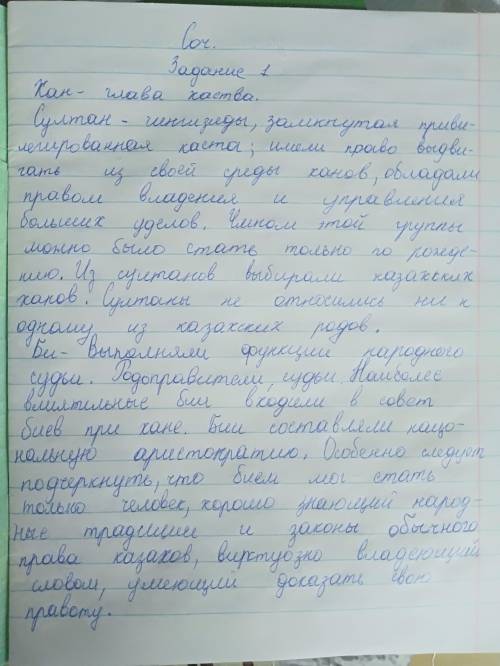 Соч.
Задание 1
Хан - глава хаства.
Султан - чингизиды, замкнутая приви-
легированная каста; имели право выдви-
гать из своей среды ханов, обладали
правом владения и управления
больших уделов. Членом этой группы
можно было стать только по рожде-
нию. Из султанов выбирали казахских
ханов. Султаны не относились ни к
одному из казахских родов.
Би - Выполняли функции народного
судьи. Родоправители, судьи. Наиболее
влиятельные бии входили в совет
биев при хане. Бии составляли нацо-
нальную аристократию. Особенно следует
подчеркнуть, что бием мог стать
только человек, хорошо знающий народ-
ные традиции и законы обычного
права казахов, виртуозно владеющий
словом, умеющий доказать свою
правоту.